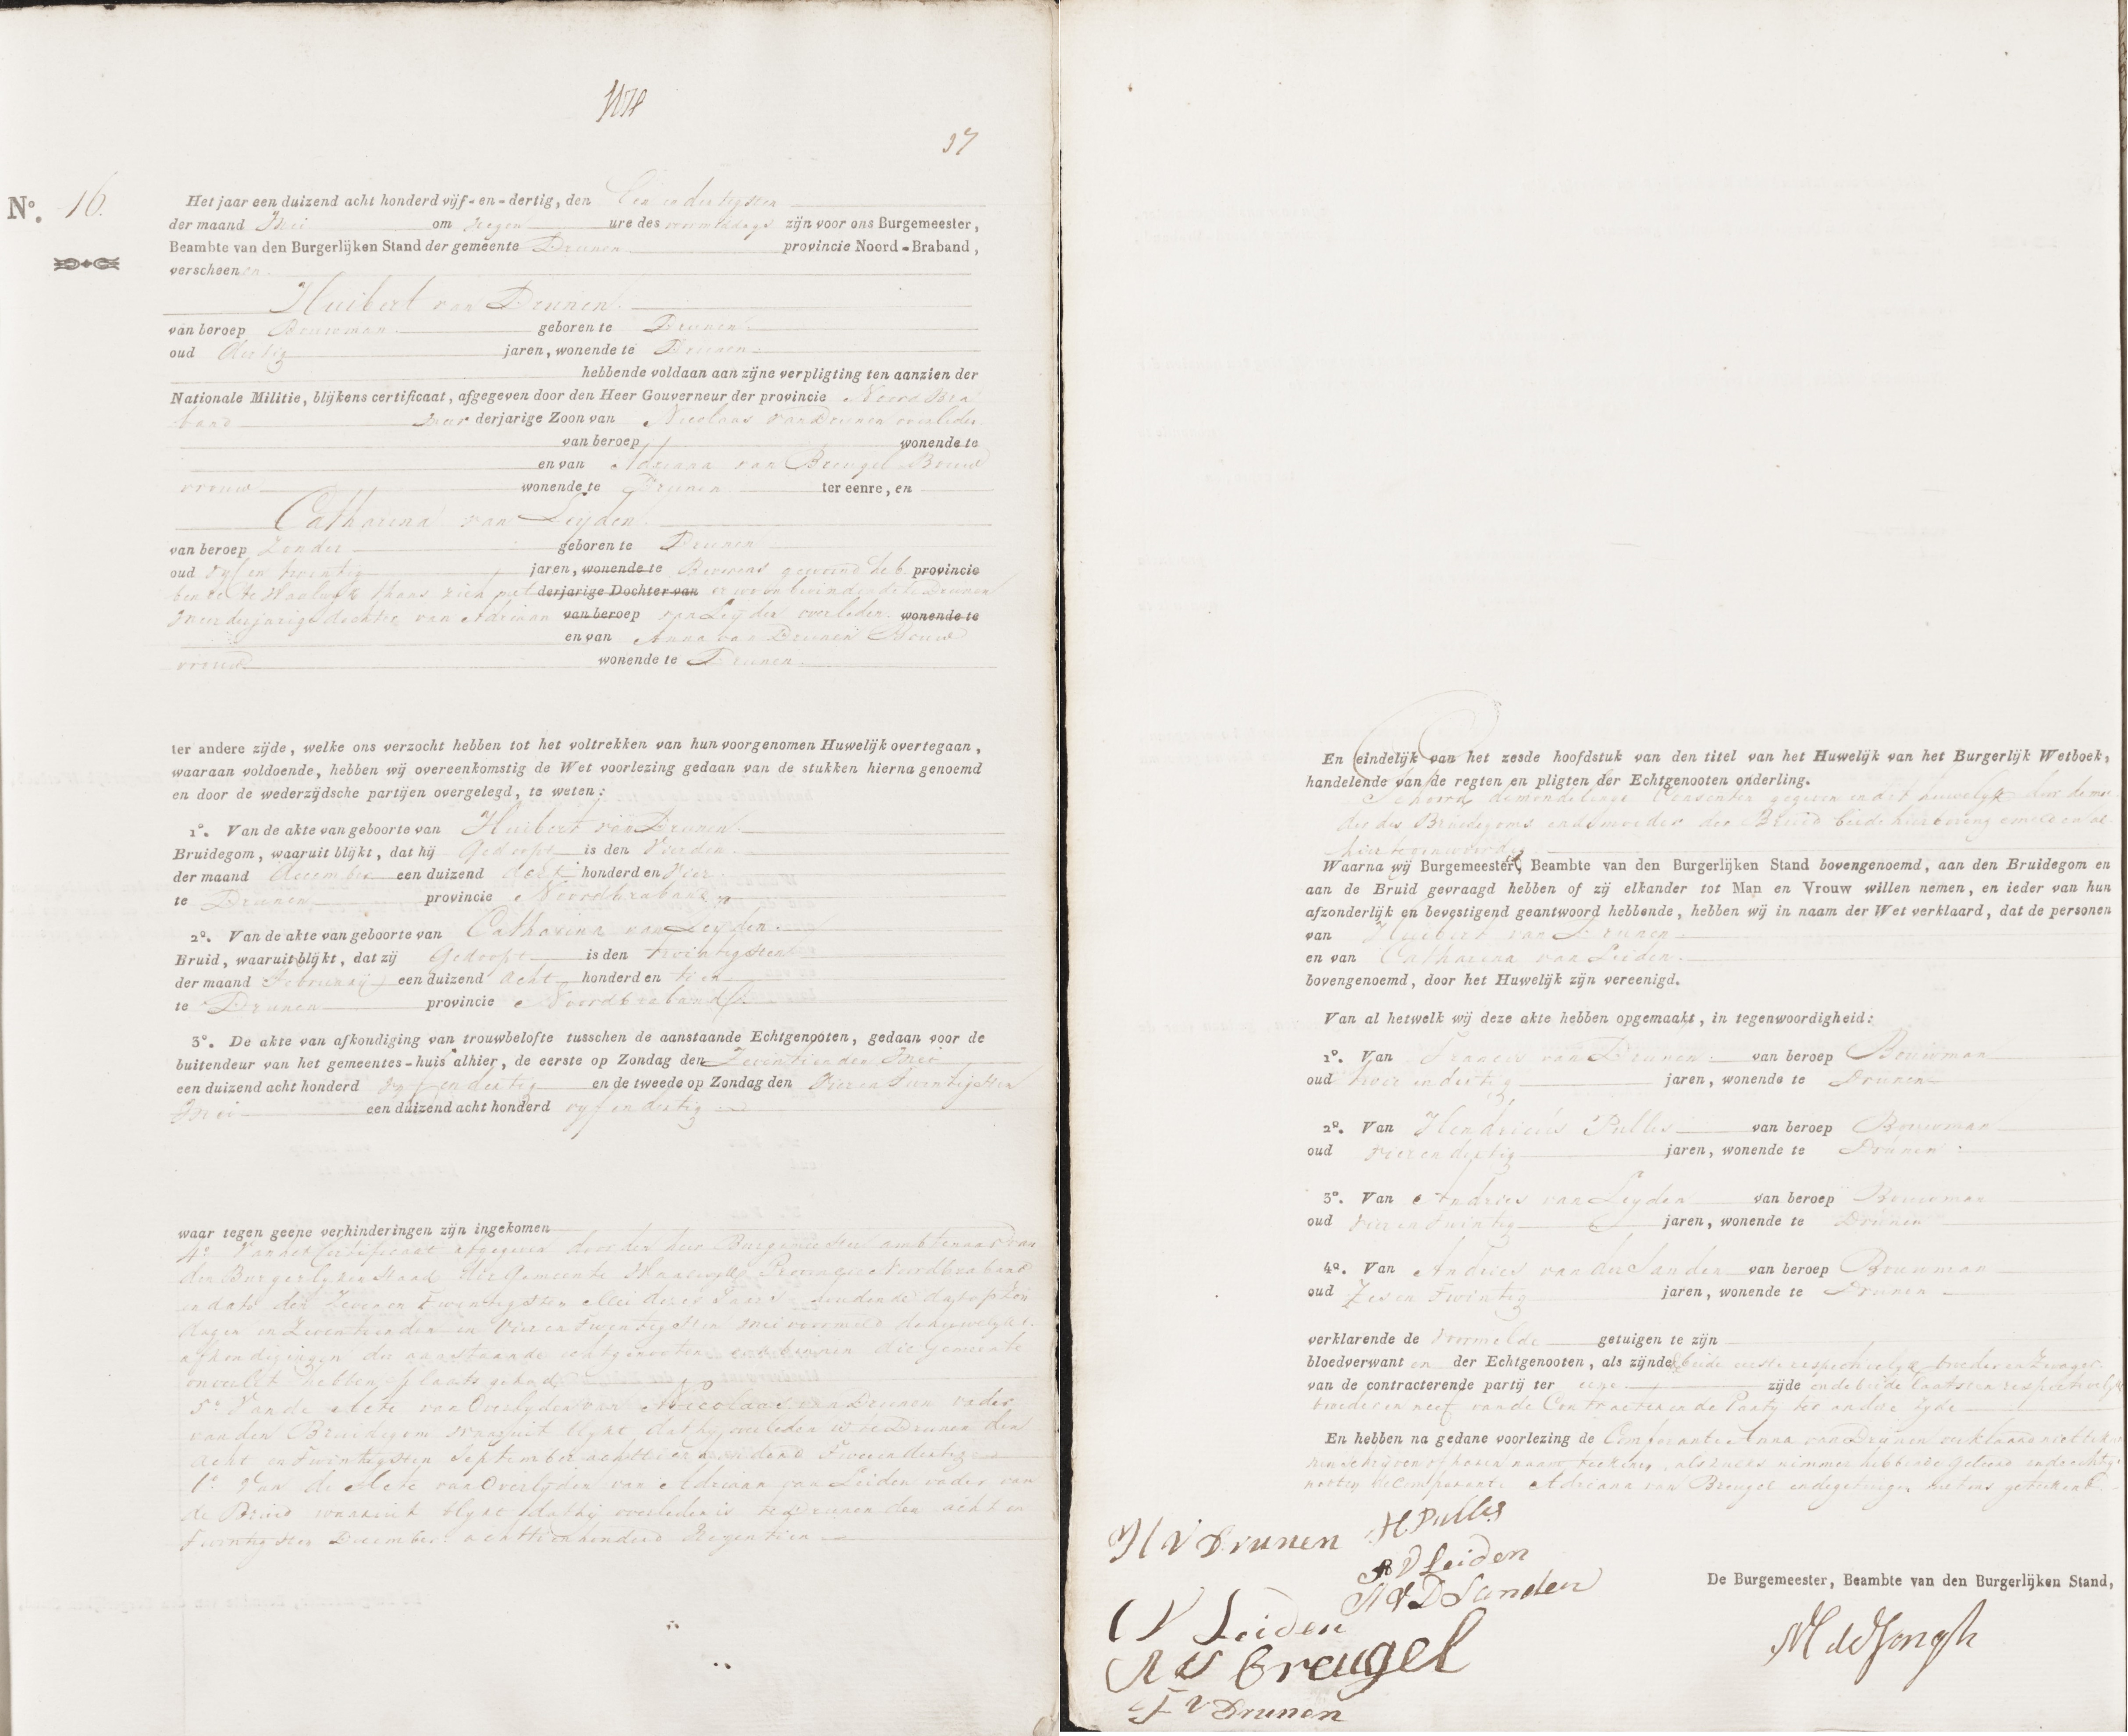 37
No. 16.
Het jaar een duizend acht honderd vijf-en-dertig, den Een en dertigsten
der maand Mei om negen ure des voormiddags zijn voor ons Burgemeester,
Beambte van den Burgerlijken Stand der gemeente Drunen provincie Noord-Braband,
verscheenen
Huibert van Drunen
van beroep Bouwman geboren te Drunen
oud dertig jaren, wonende te Drunen
hebbende voldaan aan zijne verpligting ten aanzien der
Nationale Militie, blijkens certificaat, afgegeven door den Heer Gouverneur der provincie Noord Bra
band meer derjarige Zoon van Nicolaas van Drunen overleden
van beroep wonende te
en van Adriana van Breugel Bouw
vrouw wonende te Drunen ter eenre, en
Catharina van Leyden
van beroep Zonder geboren te Drunen
oud vyf en twintig jaren, wonende te gewoond heb provincie
derjarige Dochter van Drunen
Meerderjarige dochter van Adriaan van beroep van Leyden overleden wonende te
en van Anna van Drunen Bouw
vrouw wonende te Drunen
ter andere zijde, welke ons verzocht hebben tot het voltrekken van hun voorgenomen Huwelijk overtegaan,
waaraan voldoende, hebben wij overeenkomstig de Wet voorlezing gedaan van de stukken hierna genoemd
en door de wederzijdsche partijen overgelegd, te weten:
1o. Van de akte van geboorte van Huibert van Drunen
Bruidegom, waaruit blijkt, dat hij Gedoopt is den Vierden
der maand December een duizend acht honderd en Vier
te Drunen provincie Noordbraband
2o. Van de akte van geboorte van Catharina van Leyden
Bruid, waaruit blijkt, dat zij Gedoopt is den twintigsten
der maand February een duizend acht honderd en tien
te Drunen provincie Noordbraband
3o. De akte van afkondiging van trouwbelofte tusschen de aanstaande Echtgenooten, gedaan voor de
buitendeur van het gemeentes-huis alhier, de eerste op Zondag den Zeventienden Mei
een duizend acht honderd vyf en dertig en de tweede op Zondag den Vier en Twintigsten
Mei een duizend acht honderd vyf en dertig
waar tegen geene verhinderingen zijn ingekomen
4o Van het Certificaat afgegeven door den heer Burgemeester ambtenaar van
den Burgerlyken Stand der Gemeente Waalwyk Provincie Noordbraband
in dato den Zeven en Twintigsten Mei dezes Jaars houdende dat op Zon
dagen en Zeventienden en Vier en Twintigsten Mei voormeld de huwelyks
afkondigingen der aanstaande echtgenooten ook binnen die Gemeente
onverlet hebben plaats gehad
5o Van de Acte van Overlyden van Nicolaas van Drunen vader
van den Bruidegom waaruit blykt dat hy overleden is te Drunen den
acht en Twintigsten September achttien honderd Twee en dertig
Van de Acte van Overlyden van Adriaan van Leiden vader van
de Bruid waaruit blykt dat hy overleden is te Drunen den acht en
Twintigsten December achttienhonderd Negentien
En eindelijk van het zesde hoofdstuk van den titel van het Huwelijk van het Burgerlijk Wetboek,
handelende van de regten en pligten der Echtgenooten onderling.
Gehoord de mondelinge Consenten gegeven in dit huwelyk door de moe
der des Bruidegoms en de moeder der Bruid beide hierboven gemeld en al
hier tegenwoordig
Waarna wij Burgemeester, Beambte van den Burgerlijken Stand bovengenoemd, aan den Bruidegom en
aan de Bruid gevraagd hebben of zij elkander tot Man en Vrouw willen nemen, en ieder van hun
afzonderlijk en bevestigend geantwoord hebbende, hebben wij in naam der Wet verklaard, dat de personen
van Huibert van Drunen
en van Catharina van Leiden
bovengenoemd, door het Huwelijk zijn vereenigd.
Van al hetwelk wij deze akte hebben opgemaakt, in tegenwoordigheid:
1o. Van Francis van Drunen van beroep Bouwman
oud twee en dertig jaren, wonende te Drunen
2o. Van Hendricus Pulles van beroep Bouwman
oud vier en dertig jaren, wonende te Drunen
3o. Van Andries van Leyden van beroep Bouwman
oud Vier en twintig jaren, wonende te Drunen
4o. Van Andries van der Sanden van beroep Bouwman
oud Zes en Twintig jaren, wonende te Drunen
verklarende de voormelde getuigen te zijn
bloedverwant en der Echtgenooten, als zijnde beide eerste respectivelyk broeder en Zwager
van de contracterende partij ter eene zijde en de beide laatsten respectivelyk
broeder en neef van de Contracterende Party ter andere zyde
En hebben na gedane voorlezing de Comparante Anna van Drunen verklaard niet te kun
nen schryven of haren naam teekenen, als zulks nimmer hebbende geleerd
de Comparante Adriana van Breugel en de getuigen met ons geteekend
H V Drunen
H. Pulles
A V Leiden
A V D Sanden
C V Leiden
A V Breugel
F V Drunen
De Burgemeester, Beambte van den Burgerlijken Stand,
M de Jongh